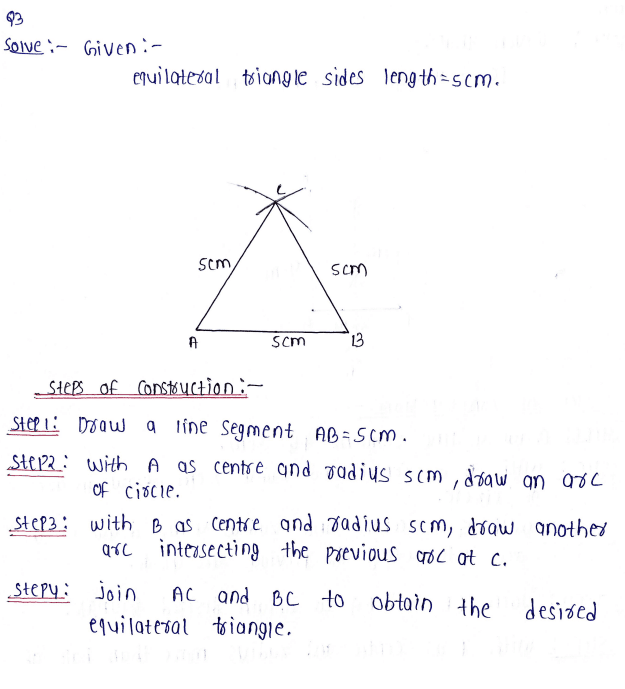 Q3
Solve :- Given :-
equilateral triangle sides length = 5cm.
C
5cm
5cm
A
5cm
B
Steps of Construction :-
Step1: Draw a line segment AB = 5cm.
Step2: With A as centre and radius 5cm, draw an arc
of circle.
Step3: with B as centre and radius 5cm, draw another
arc intersecting the previous arc at C.
Step4: join AC and BC to obtain the desired
equilateral triangle.